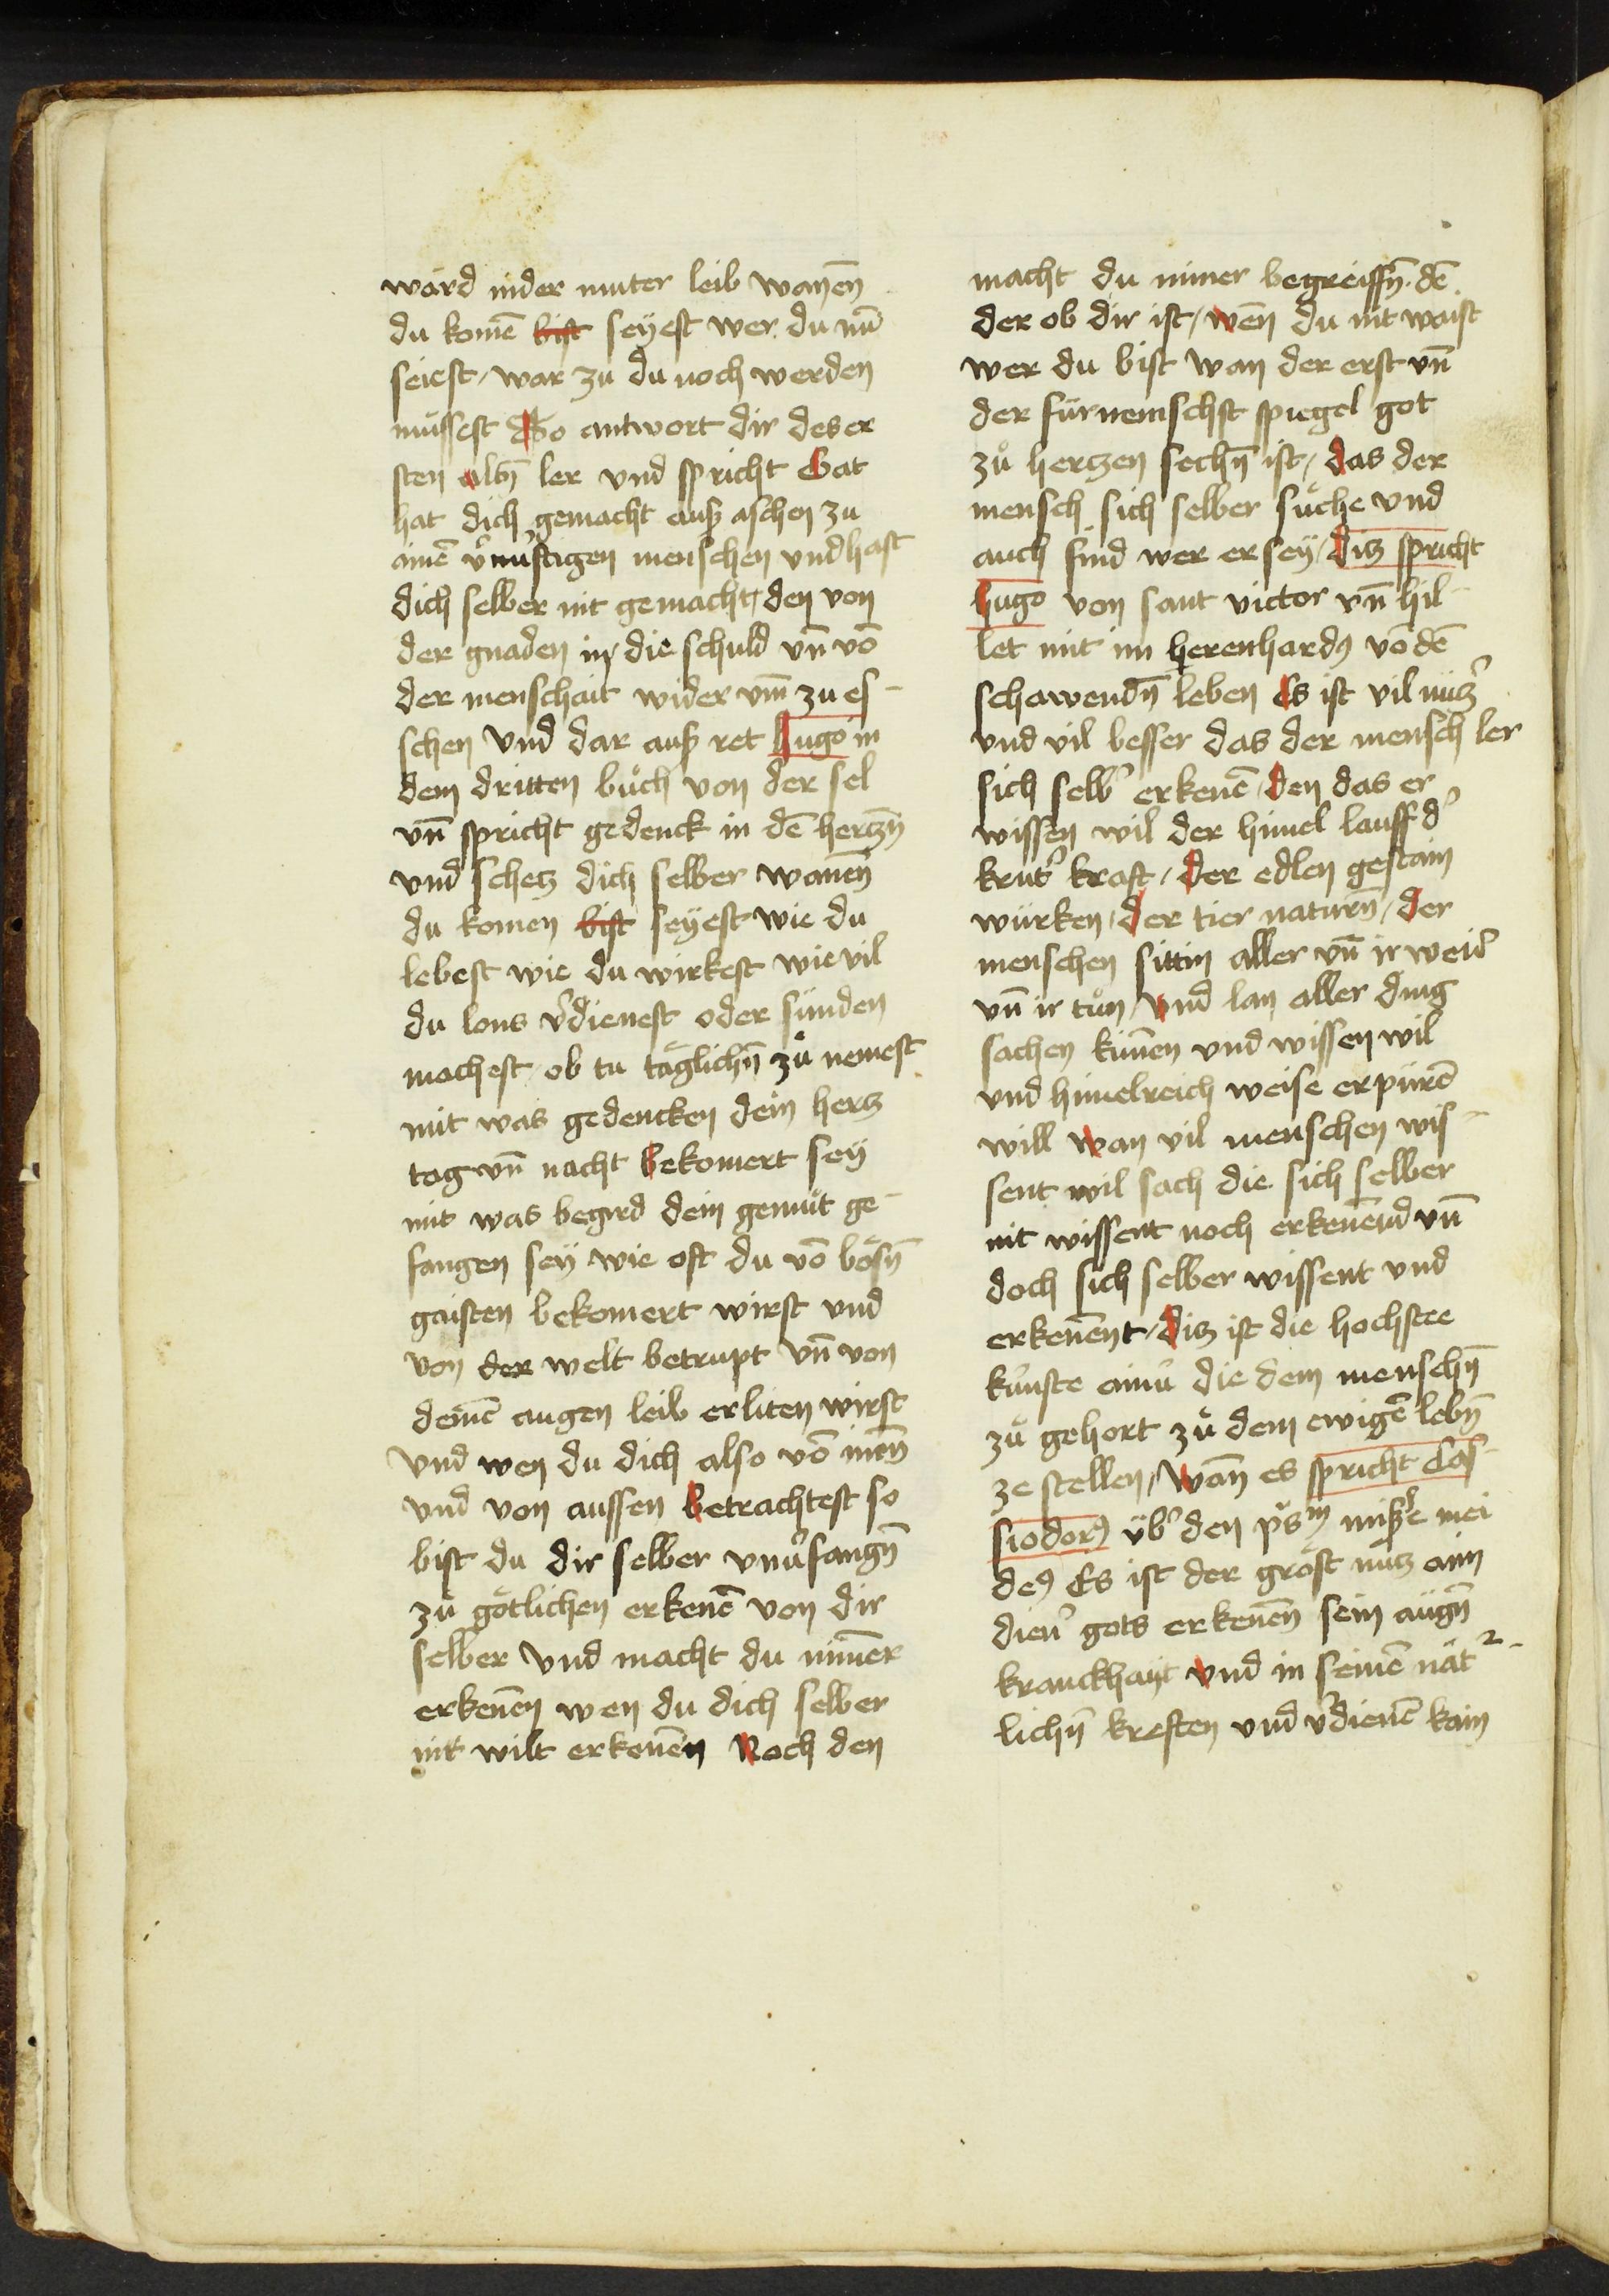 ward inder muter leib wan̄en
du komē bist seyest wer du nū
seiest / war zu du noch werden
mussest So antwort dir des er
sten albn̄ ler vnd spricht Gat
hat dich gemacht auß aschen zu
ainē v̉nuftigen menschen vnd hast
dich selber nit gemacht / den von
der gnaden in die schuld vn̄ vō
der menschait wider vm̄ zu es-
schen Vnd dar auß ret Hugo in
dem dritten buͦch von der sel
vn̄ spricht gedenck in dē hertzn̄
vnd schetz dich selber wanen̄
du komen bist seyest wie du
lebest wie du wirkest wie vil
du lons v̉dienest oder sünden
machest / ob tu täglichn̄ zuͦ nemest
mit was gedencken dein hertz
tag vn̄ nacht bekomert sey
mit was begird dein gemüt ge-
fangen sey wie oft du vō bösn̄
gaisten bekomert wirst vnd
von der welt betrupt vn̄ von
deinē augen leib erliten wirst
Vnd wen du dich also vō inen̄
vnd von aussen betrachtest so
bist du dir selber vnu̓fangn̄
zuͦ götlichen erkenē von dir
selber Vnd macht du nim̄er
erken̄en wen du dich selber
nit wilt erken̄en Noch den
macht du nimer begreiffn̄ dē
der ob dir ist / wēn du nit waist
wer du bist wan der erst vn̄
der fürnemschst spiegel got
zuͦ hertzen sechn̄ ist / das der
mensch sich selber suͦche vnd
auch find wer er sey / ditz spricht
hugo von sant victor vn̄ hil-
let mit im herenhardꝰ vō dē
schawendn̄ leben Es ist vil nütz̉
vnd vil besser das der mensch ler
sich selb̉ erkenē / den das er
wissen wil der himel lauff d̉
krut̉ kraft / der edlen gestain
würken / der tier naturn̄ / der
menschen sittin aller vn̄ ir weil̉
vn̄ ir tuͦn / vnd lan aller ding
sachen kün̄en vnd wissen wil
vnd himelreich weise erpürē
will wan vil menschen wis-
sent wil sach die sich selber
nit wissent noch erken̄end vn̄
doch sich selber wissent vnd
erken̄ent / ditz ist die hochste
kunste ainu̓ die dem menschn̄
zuͦ gehort zuͦ dem ewigē lebn̄
ze stellen / Wān es spricht Cas-
siodorꝰ üb̉ den ps̉m mise̓re mei
deꝰ Es ist der gröst nütz ainn
dien̉ gots erken̄en sein aügn̄
kranckhayt vnd in seinē nat²-
lichn̄ kreften vnd v̉dienē kain